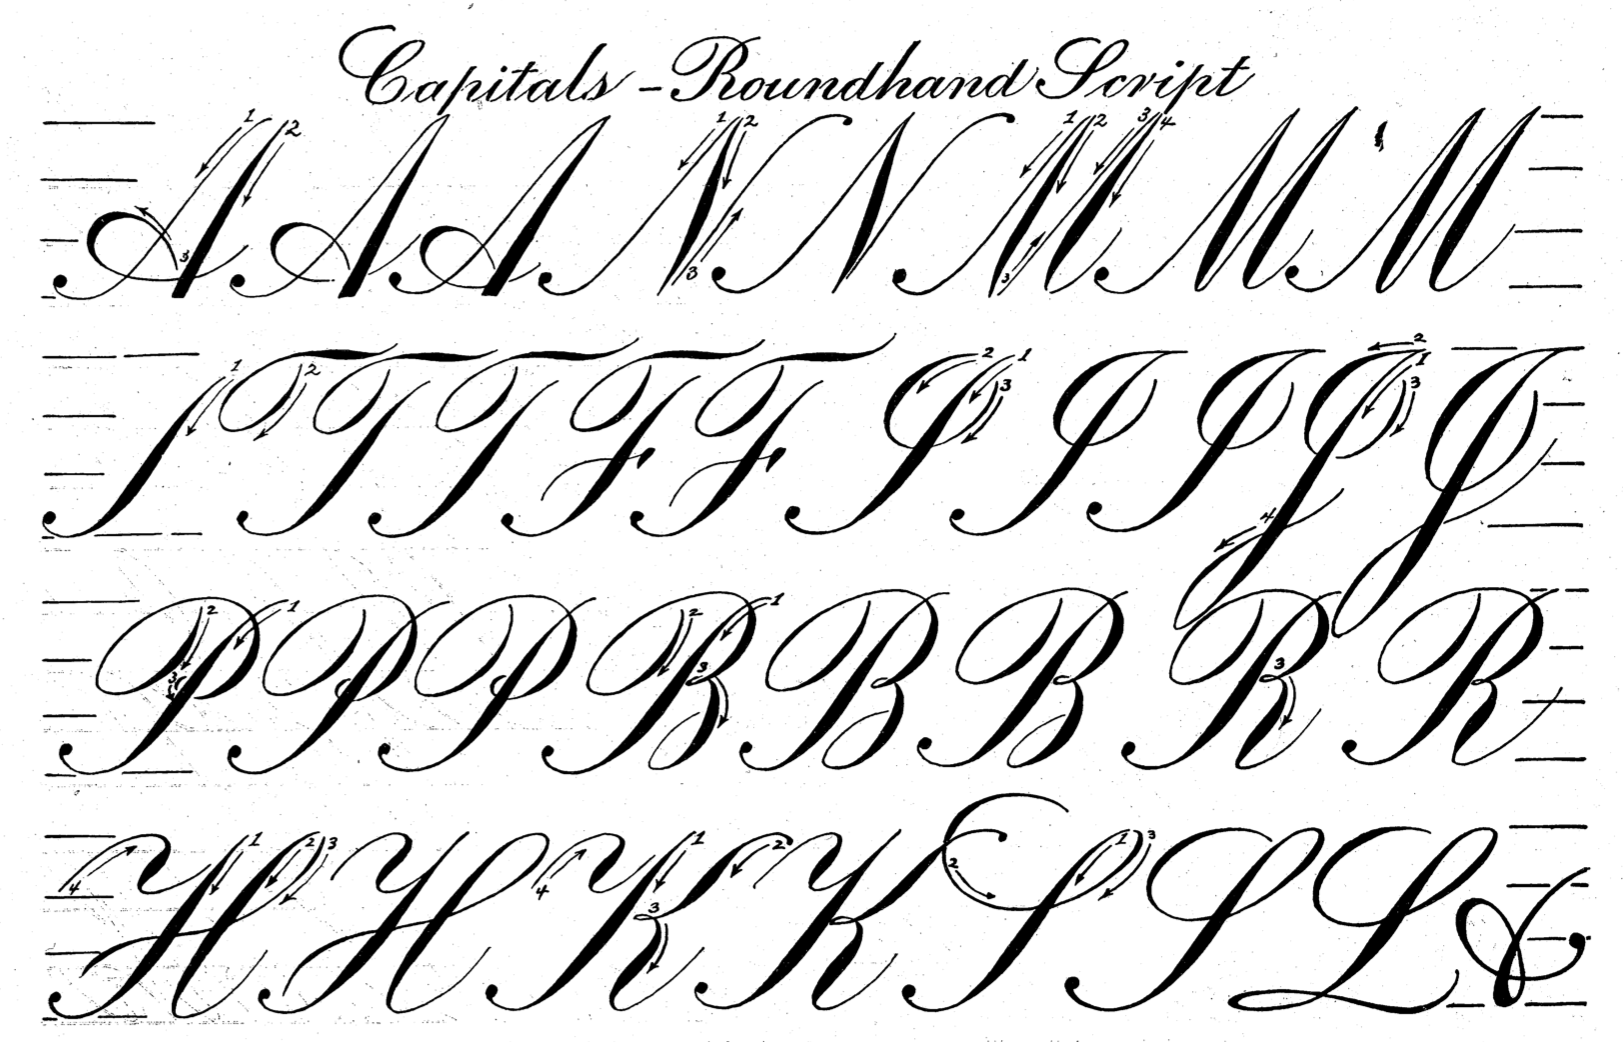 Capitals - Roundhand Script
1 2 3 A A A 1 2 3 N N 1 2 3 3 4 M M M
1 2 T T F F 2 1 3 I I I 2 1 3 4 J J
2 1 3 P P P 2 1 3 B B B 3 R R
4 1 2 3 H H 4 1 2 3 K K 2 1 3 S S L